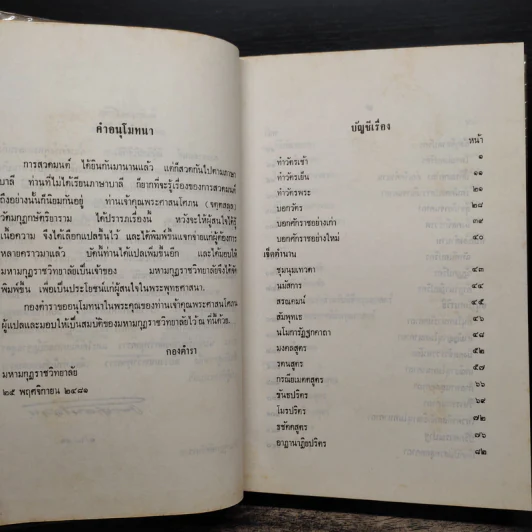 คำอนุโมทนา
การสวดมนต์ ได้ยินกันมานานแล้ว แต่ก็สวดกันไปตามภาษา
บาลี ท่านที่ไม่ได้เรียนภาษาบาลี ก็ยากที่จะรู้เรื่องของการสวดมนต์
ถึงอย่างนั้นก็นิยมกันอยู่ ท่านเจ้าคุณพระศาสนโศภน
วัดมกุฏกษัตริยาราม ได้ปรารภเรื่องนี้ หวังจะให้ผู้สนใจได้รู้
เนื้อความ จึงได้เลือกแปลขึ้นไว้ และได้พิมพ์ขึ้นแจกจ่ายแก่ผู้ต้องการ
หลายคราวมาแล้ว บัดนี้ท่านได้แปลเพิ่มขึ้นอีก และได้มอบให้
มหามกุฏราชวิทยาลัยเป็นเจ้าของ มหามกุฏราชวิทยาลัยจึงได้จัด
พิมพ์ขึ้น เพื่อเป็นประโยชน์แก่ผู้สนใจในพระพุทธศาสนา.
กองตำราขออนุโมทนาในพระคุณของท่านเจ้าคุณพระศาสนโศภน
ผู้แปลและมอบให้เป็นสมบัติของมหามกุฏราชวิทยาลัยไว้ณ ที่นี้ด้วย.
กองตำรา
มหามกุฏราชวิทยาลัย
๒๕ พฤศจิกายน ๒๔๘๑
บัญชีเรื่อง
หน้า
ทำวัตรเช้า ๑
ทำวัตรเย็น ๑๑
ทำวัตรพระ ๒๑
บอกวัตร ๒๘
บอกศักราชอย่างเก่า ๓๙
บอกศักราชอย่างใหม่ ๔๐
เจ็ดตำนาน
ชุมนุมเทวดา ๔๓
นมัสการ ๔๔
สรณคมน์ ๔๕
สัมพุทเธ ๔๖
นโมการัฏฐกคาถา ๔๘
มงคลสูตร ๕๒
รตนสูตร ๕๗
กรณียเมตตสูตร ๖๖
ขันธปริตร ๖๙
โมรปริตร ๗๒
ธชัคคสูตร ๗๖
อาฏานาฏิยปริตร ๘๒